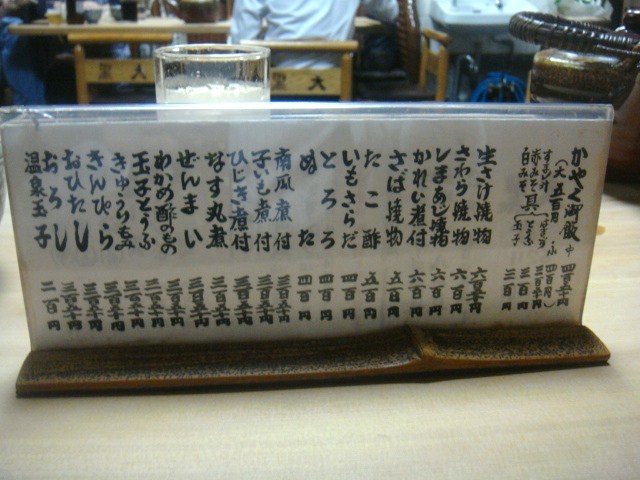 かやく御飯 中 四百五十円
(大 五百円 小 四百円)
すまし汁 三百五十円
赤みそ 三百円
白みそ 三百円
具 とうふ 玉子
生さけ焼物 六百五十円
さわら焼物 六百円
しまあじ焼物 六百円
かれい煮付 六百円
さば焼物 五百円
たこ酢 五百円
いもさらだ 四百円
とろろ 四百円
ぬた 四百円
南瓜煮付 三百五十円
子いも煮付 三百五十円
ひじき煮付 三百五十円
なす丸煮 三百五十円
ぜんまい 三百五十円
わかめ酢のもの 三百五十円
玉子とうふ 三百五十円
きゅうりもみ 三百五十円
きんぴら 三百五十円
おひたし 三百五十円
おろし 三百五十円
温泉玉子 二百円
大黒
大黒